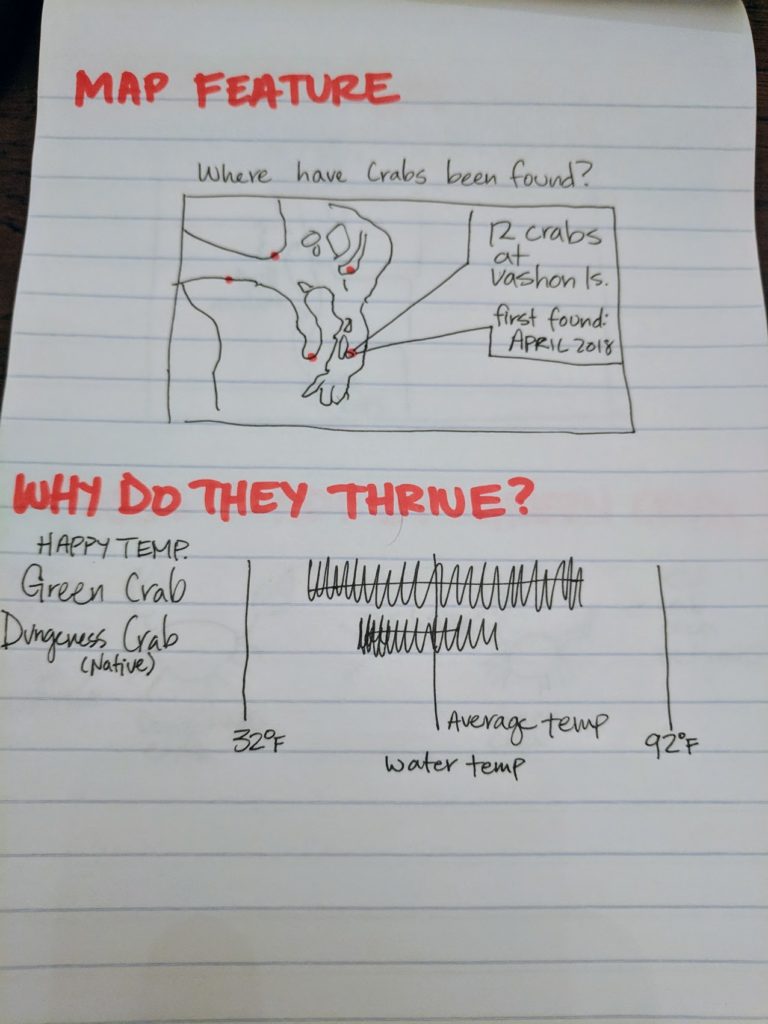 MAP FEATURE
Where have Crabs been found?
12 crabs
at
vashon Is.
first found:
APRIL 2018
WHY DO THEY THRIVE?
HAPPY TEMP.
Green Crab
Dungeness Crab
(Native)
Average temp
32°F
92°F
water temp